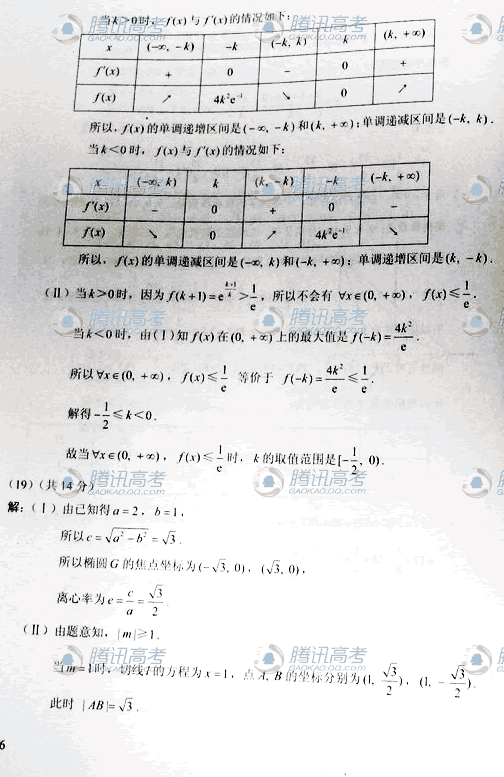 当k>0时，f(x)与f′(x)的情况如下：
x (-∞, -k) -k (-k, k) k (k, +∞)
f′(x) + 0 - 0 +
f(x) ↗ 4k²e⁻¹ ↘ 0 ↗
所以，f(x)的单调递增区间是(-∞, -k)和(k, +∞)；单调递减区间是(-k, k).
当k<0时，f(x)与f′(x)的情况如下：
x (-∞, k) k (k, -k) -k (-k, +∞)
f′(x) - 0 + 0 -
f(x) ↘ 0 ↗ 4k²e⁻¹ ↘
所以，f(x)的单调递减区间是(-∞, k)和(-k, +∞)；单调递增区间是(k, -k).
(Ⅱ) 当k>0时，因为f(k+1)=e^((k+1)/k)>1/e，所以不会有 ∀x∈(0, +∞)，f(x)≤1/e.
当k<0时，由(Ⅰ)知f(x)在(0, +∞)上的最大值是f(-k)=4k²/e.
所以∀x∈(0, +∞)，f(x)≤1/e 等价于 f(-k)=4k²/e≤1/e.
解得-1/2≤k<0.
故当∀x∈(0, +∞)，f(x)≤1/e时，k的取值范围是[-1/2, 0).
(19)(共14分)
解：(Ⅰ) 由已知得a=2，b=1，
所以c=√(a²-b²)=√3.
所以椭圆G的焦点坐标为(-√3, 0)，(√3, 0)，
离心率为e=c/a=√3/2.
(Ⅱ) 由题意知，|m|≥1.
当m=1时，切线l的方程为x=1，点A, B的坐标分别为(1, √3/2)，(1, -√3/2).
此时 |AB|=√3.
6
腾讯高考
(GAOKAO.QQ.COM)